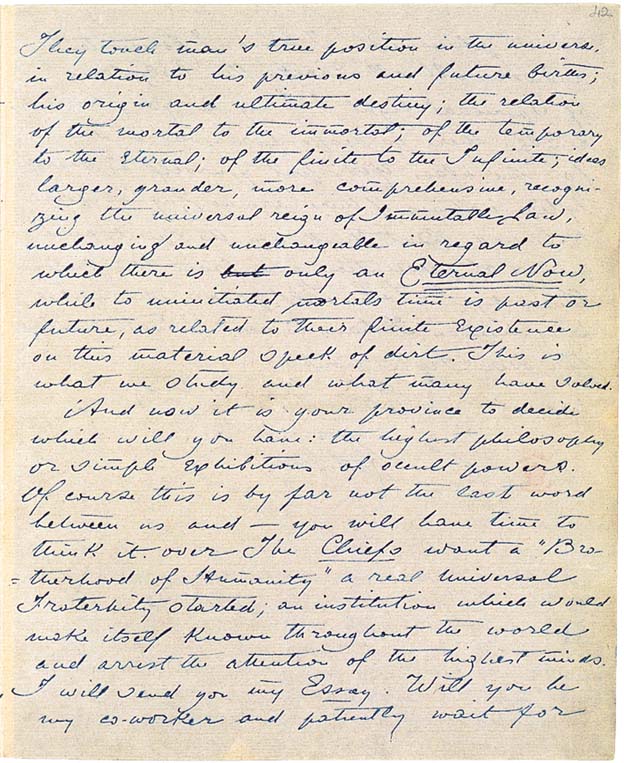 42
They touch man's true position in the universe,
in relation to his previous and future births;
his origin and ultimate destiny; the relation
of the mortal to the immortal; of the temporary
to the Eternal; of the finite to the Infinite; ideas
larger, grander, more comprehensive, recogni-
zing the universal reign of Immutable Law,
unchanging and unchangeable in regard to
which there is but only an Eternal Now,
while to uninitiated mortals time is past or
future, as related to their finite existence
on this material speck of dirt. This is
what we study and what many have solved.
And now it is your province to decide
which will you have: the highest philosophy
or simple exhibitions of occult powers.
Of course this is by far not the last word
between us and — you will have time to
think it over The Chiefs want a "Bro-
=therhood of Humanity" a real Universal
Fraternity started; an institution which would
make itself known throughout the world
and arrest the attention of the highest minds.
I will send you my Essay. Will you be
my co-worker and patiently wait for